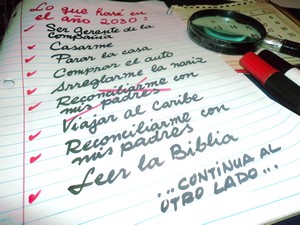 Lo que haré en
el año 2030:
Ser Gerente de la
Compañía
Casarme
Parar la casa
Comprar el auto
Arreglarme la nariz
Reconciliarme con
mis padres
Viajar al Caribe
Reconciliarme con
mis padres
Leer la Biblia
...CONTINUA AL
OTRO LADO...